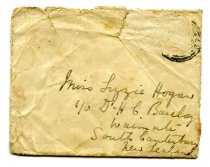 Miss Lizzie Hogan
c/o Dr H C Barclay
Waimate
South Canterbury
New Zealand